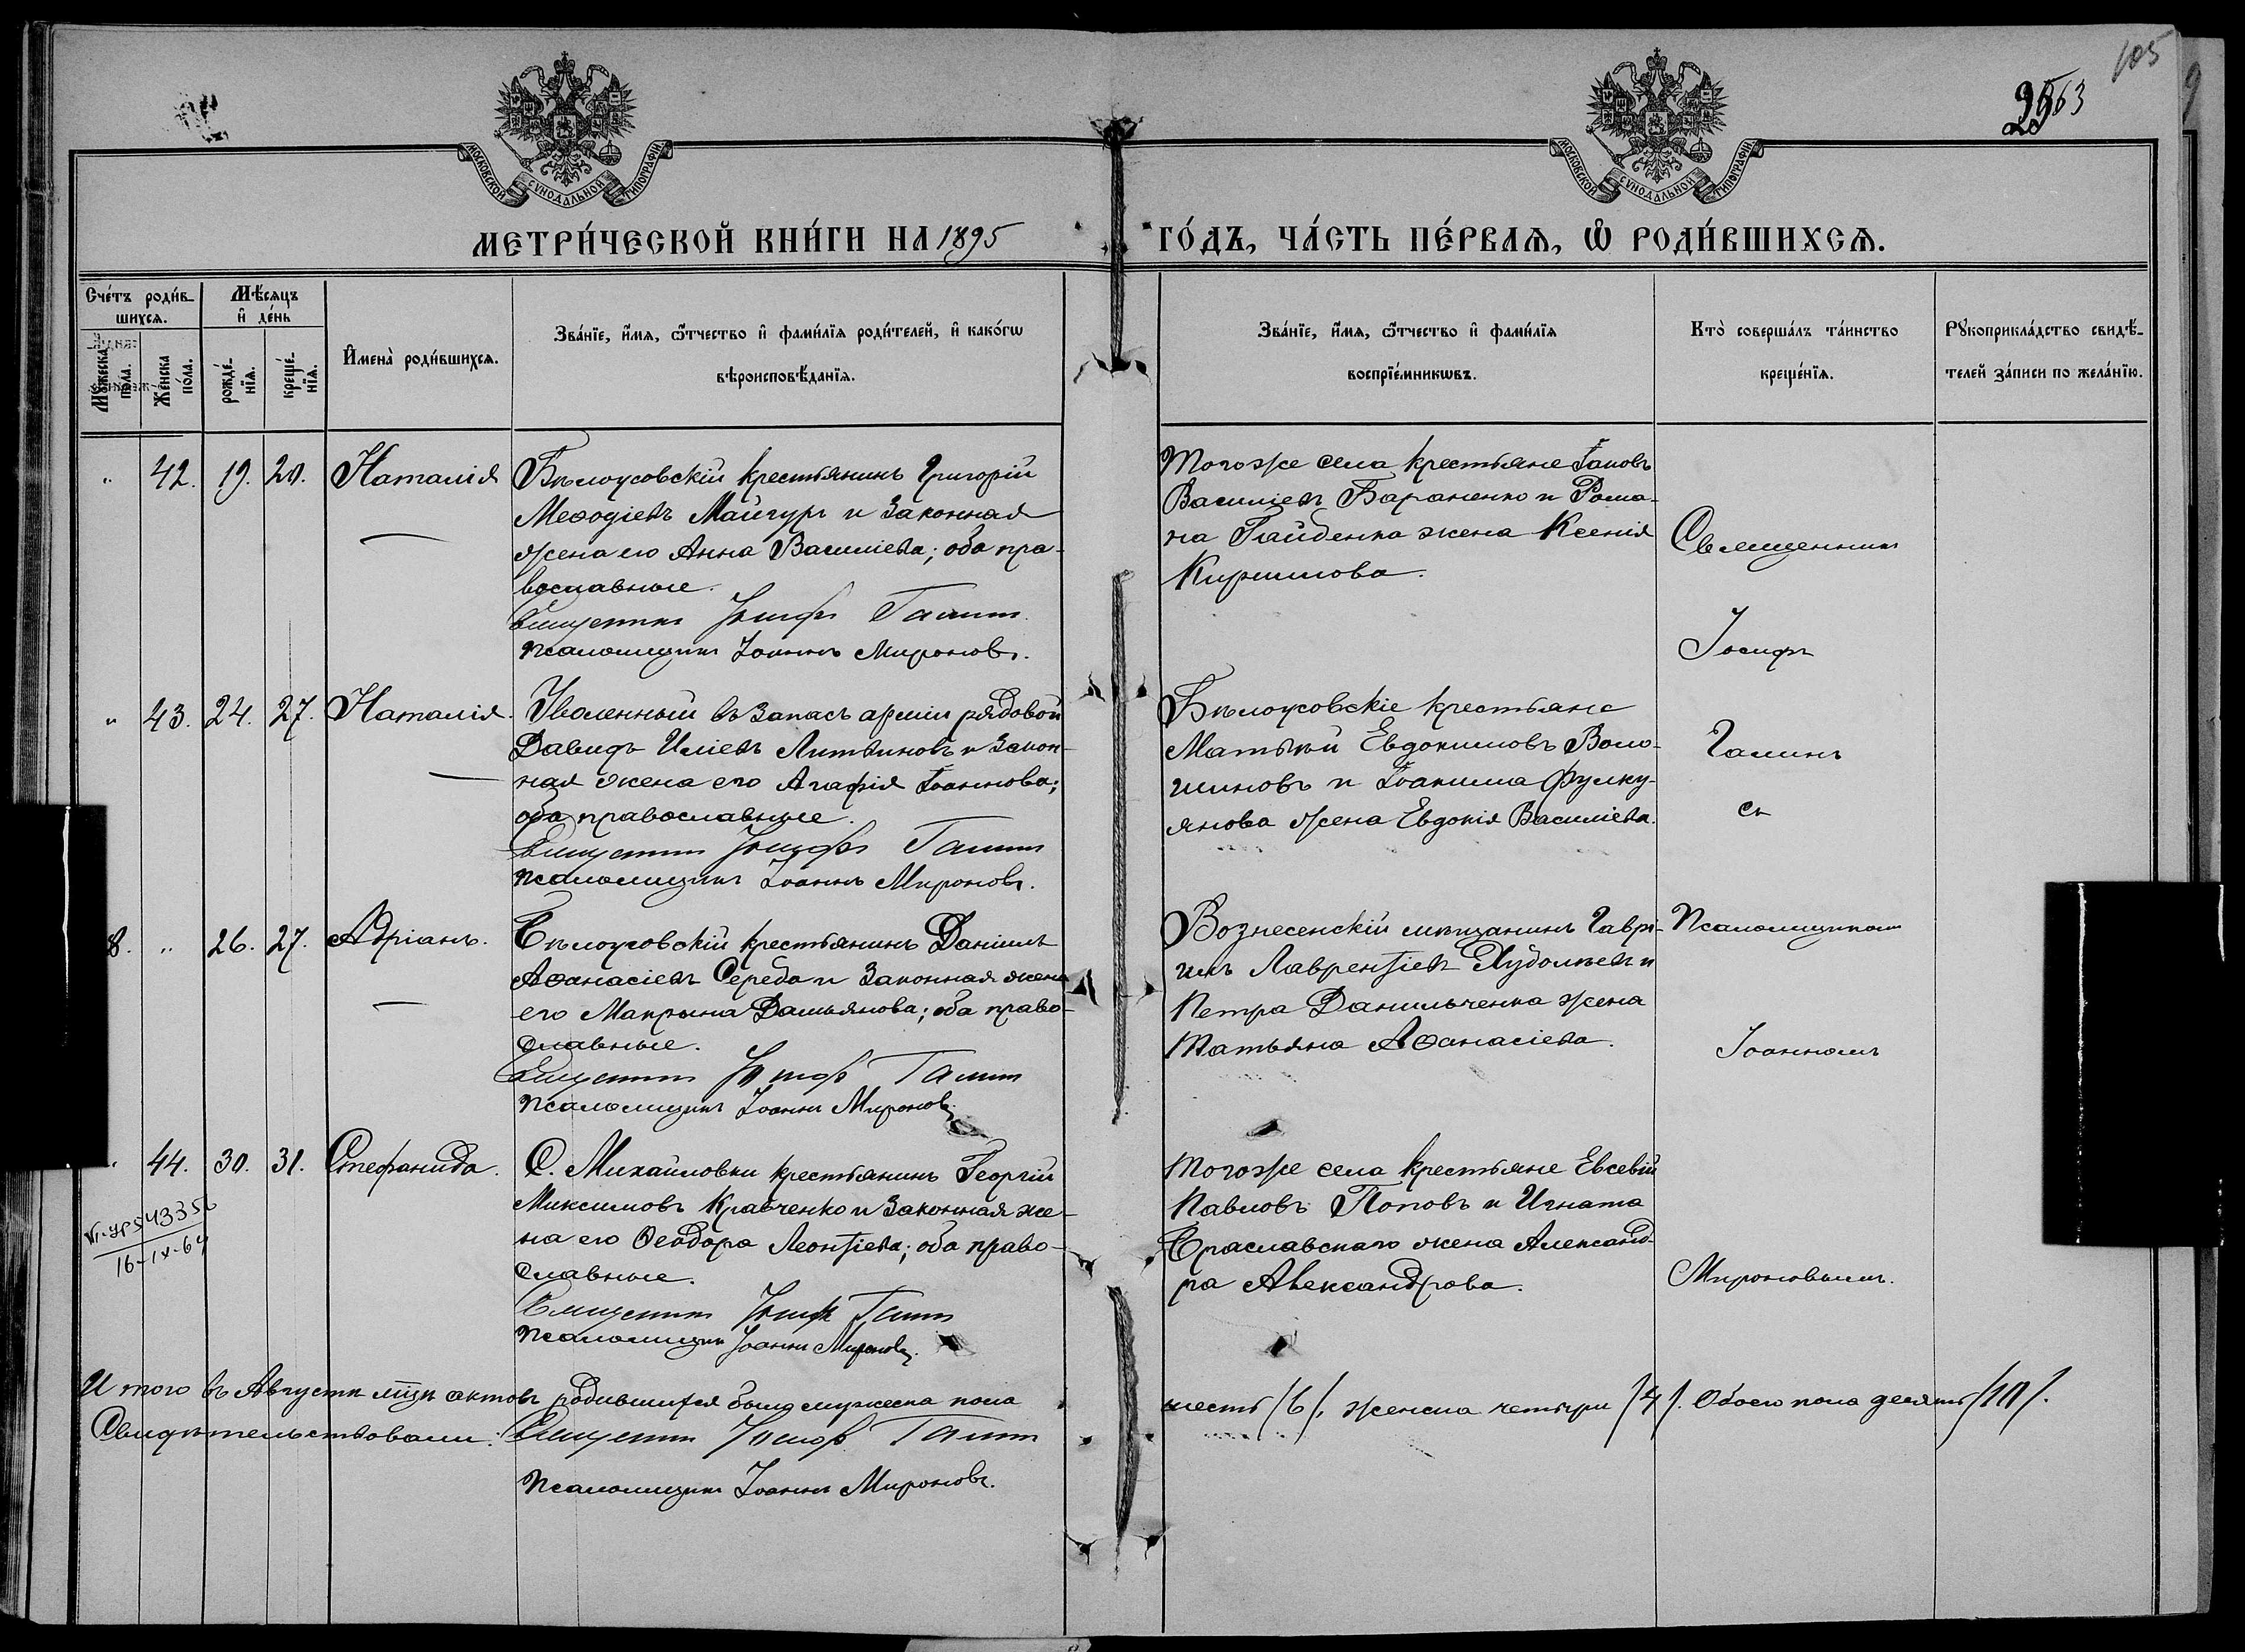 105
2563
МОСКОВСКОЙ СѴНОДАЛЬНОЙ ТИПОГРАФІИ
МОСКОВСКОЙ СѴНОДАЛЬНОЙ ТИПОГРАФІИ
МЕТРИ́ЧЕСКОЙ КНИ́ГИ НА 1895 ГО́ДЪ, ЧА́СТЬ ПЕ́РВАѦ, Ѡ҆ РОДИ́ВШИХСѦ.
Сче́тъ роди́в-
шихсѧ.
Мꙋ́жеска по́ла.
Же́нска по́ла.
Мѣ́сѧцъ
и҆ де́нь
рожде́-
нїѧ.
креще́-
нїѧ.
И҆мена̀ роди́вшихсѧ.
Зва́нїе, и҆́мѧ, ѻ҆́тчество и҆ фами́лїѧ роди́телей, и҆ како́гѡ
вѣроисповѣ́данїѧ.
Зва́нїе, и҆́мѧ, ѻ҆́тчество и҆ фами́лїѧ
воспрїе́мникѡвъ.
Кто̀ соверша́лъ та́инство
креще́нїѧ.
Рꙋкоприкла́дство свидѣ́-
телей за́писи по жела́нїю.
" 42. 19. 20. Наталія
Бѣлоусовскій крестьянинъ Григорій
Меѳодіевъ Майгуръ и законная
жена его Анна Василіева; оба пра-
вославные.
Священникъ Іосифъ Галинъ
Псаломщикъ Іоаннъ Мироновъ.
Того же села крестьяне Іаковъ
Василіевъ Бараненко и Рома-
на Гайденка жена Ксенія
Кириллова.
Священникъ
Іосифъ
Галинъ
съ
Псаломщикомъ
Іоанномъ
Мироновымъ.
" 43. 24. 27. Наталія.
Уволенный въ запасъ арміи рядовой
Давидъ Иліевъ Литвиновъ и закон-
ная жена его Агафія Іоаннова;
оба православные.
Священникъ Іосифъ Галинъ
Псаломщикъ Іоаннъ Мироновъ.
Бѣлоусовскіе крестьяне
Матѳей Евдокимовъ Воло-
шиновъ и Іоакима Фулку-
янова жена Евдокія Василіева.
8. " 26. 27. Адріанъ.
Бѣлоусовскій крестьянинъ Даніилъ
Аѳанасіевъ Середа и законная жена
его Макрина Дамьянова; оба право-
славные.
Священникъ Іосифъ Галинъ
Псаломщикъ Іоаннъ Мироновъ
Вознесенскій мѣщанинъ Гаврі-
илъ Лаврентіевъ Худолѣевъ и
Петра Данильченка жена
Татьяна Аѳанасіева.
" 44. 30. 31. Стефанида.
С. Михайловки крестьянинъ Георгій
Максимовъ Кравченко и законная же-
на его Ѳеодора Леонтіева; оба право-
славные.
Священникъ Іосифъ Галинъ
Псаломщикъ Іоаннъ Мироновъ.
Того же села крестьяне Евсевій
Павловъ Поповъ и Игната
Браславскаго жена Александ-
ра Александрова.
543356
16-IX-64
Итого въ Августѣ мцѣ актовъ родившихся было мужеска пола шесть /6/, женска четыри /4/. Обоего пола десять /10/.
Свидѣтельствовали: Священникъ Іосифъ Галинъ
Псаломщикъ Іоаннъ Мироновъ.